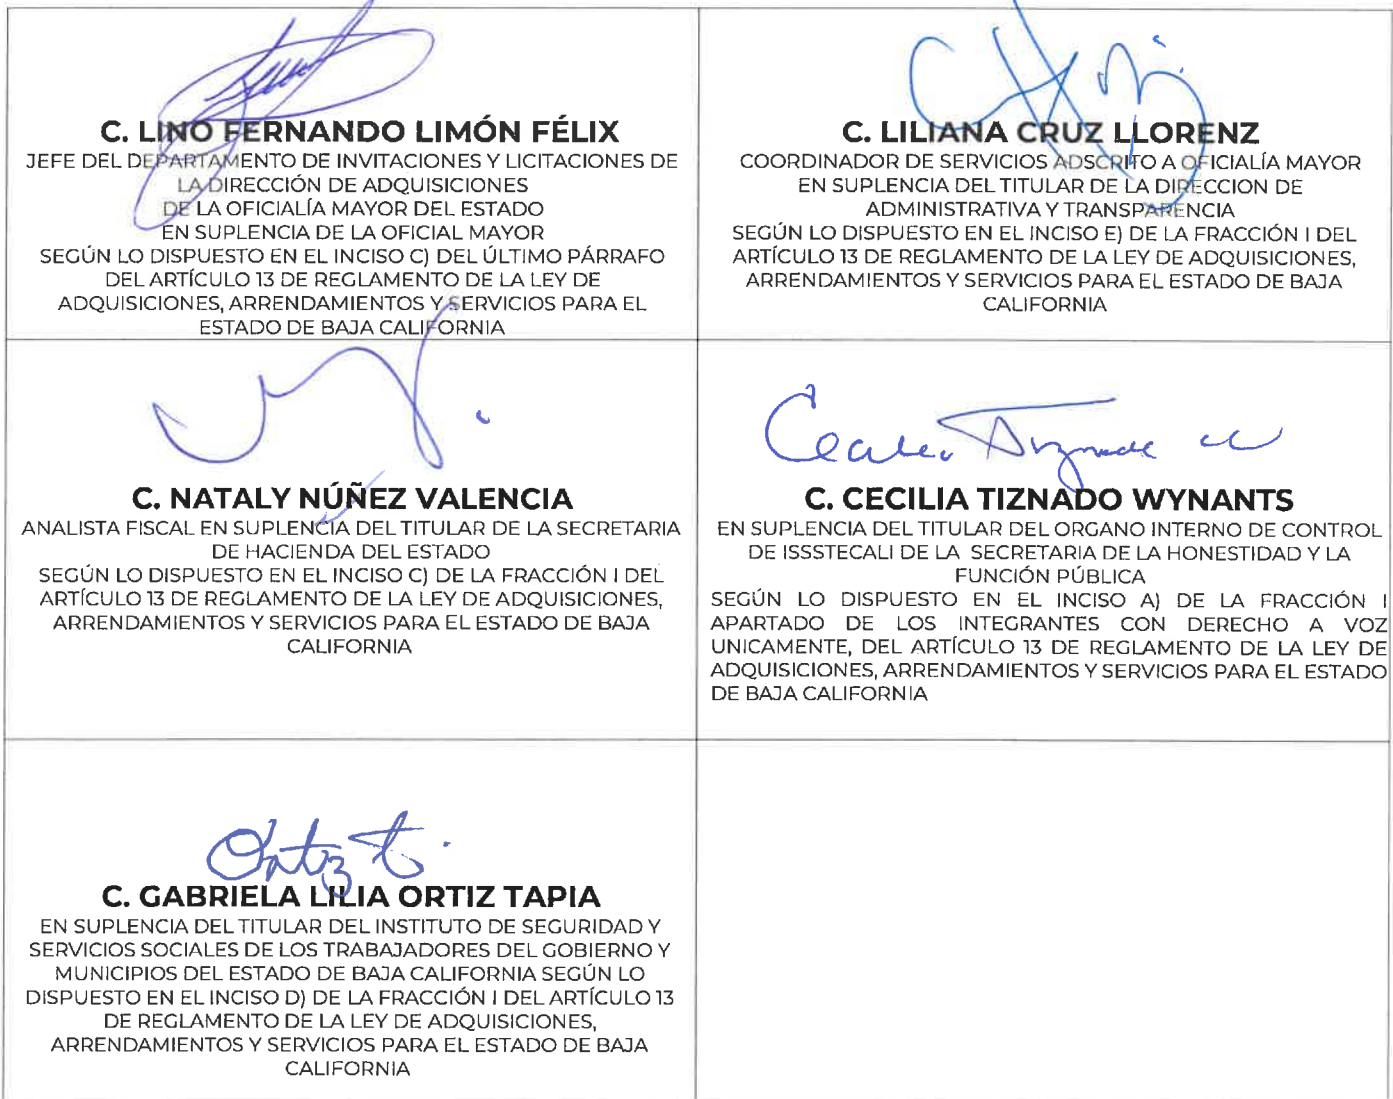 C. LINO FERNANDO LIMÓN FÉLIX
JEFE DEL DEPARTAMENTO DE INVITACIONES Y LICITACIONES DE
LA DIRECCIÓN DE ADQUISICIONES
DE LA OFICIALÍA MAYOR DEL ESTADO
EN SUPLENCIA DE LA OFICIAL MAYOR
SEGÚN LO DISPUESTO EN EL INCISO C) DEL ÚLTIMO PÁRRAFO
DEL ARTÍCULO 13 DE REGLAMENTO DE LA LEY DE
ADQUISICIONES, ARRENDAMIENTOS Y SERVICIOS PARA EL
ESTADO DE BAJA CALIFORNIA
C. LILIANA CRUZ LLORENZ
COORDINADOR DE SERVICIOS ADSCRITO A OFICIALÍA MAYOR
EN SUPLENCIA DEL TITULAR DE LA DIRECCION DE
ADMINISTRATIVA Y TRANSPARENCIA
SEGÚN LO DISPUESTO EN EL INCISO E) DE LA FRACCIÓN I DEL
ARTÍCULO 13 DE REGLAMENTO DE LA LEY DE ADQUISICIONES,
ARRENDAMIENTOS Y SERVICIOS PARA EL ESTADO DE BAJA
CALIFORNIA
C. NATALY NÚÑEZ VALENCIA
ANALISTA FISCAL EN SUPLENCIA DEL TITULAR DE LA SECRETARIA
DE HACIENDA DEL ESTADO
SEGÚN LO DISPUESTO EN EL INCISO C) DE LA FRACCIÓN I DEL
ARTÍCULO 13 DE REGLAMENTO DE LA LEY DE ADQUISICIONES,
ARRENDAMIENTOS Y SERVICIOS PARA EL ESTADO DE BAJA
CALIFORNIA
C. CECILIA TIZNADO WYNANTS
EN SUPLENCIA DEL TITULAR DEL ORGANO INTERNO DE CONTROL
DE ISSSTECALI DE LA SECRETARIA DE LA HONESTIDAD Y LA
FUNCIÓN PÚBLICA
SEGÚN LO DISPUESTO EN EL INCISO A) DE LA FRACCIÓN I
APARTADO DE LOS INTEGRANTES CON DERECHO A VOZ
UNICAMENTE, DEL ARTÍCULO 13 DE REGLAMENTO DE LA LEY DE
ADQUISICIONES, ARRENDAMIENTOS Y SERVICIOS PARA EL ESTADO
DE BAJA CALIFORNIA
Ortiz t.
C. GABRIELA LILIA ORTIZ TAPIA
EN SUPLENCIA DEL TITULAR DEL INSTITUTO DE SEGURIDAD Y
SERVICIOS SOCIALES DE LOS TRABAJADORES DEL GOBIERNO Y
MUNICIPIOS DEL ESTADO DE BAJA CALIFORNIA SEGÚN LO
DISPUESTO EN EL INCISO D) DE LA FRACCIÓN I DEL ARTÍCULO 13
DE REGLAMENTO DE LA LEY DE ADQUISICIONES,
ARRENDAMIENTOS Y SERVICIOS PARA EL ESTADO DE BAJA
CALIFORNIA